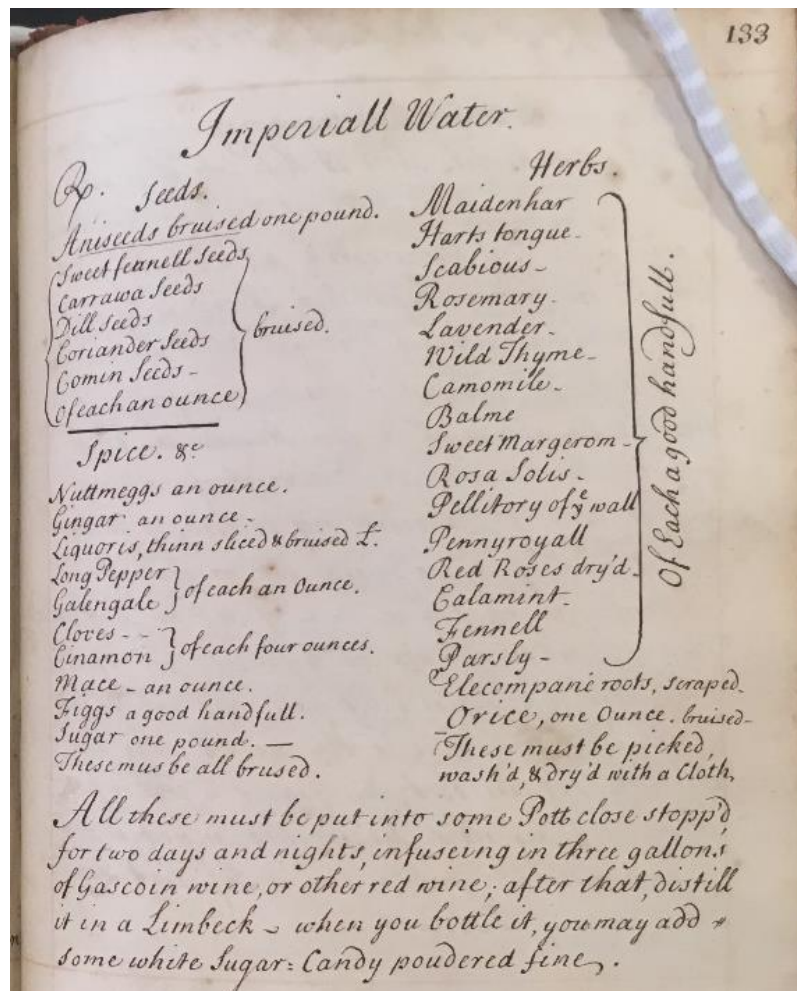 133
Imperiall Water.
Rp. Seeds.
Aniseeds bruised one pound.
Sweet fennell Seeds
Carrawa Seeds
Dill Seeds
Coriander Seeds
Comin Seeds -
Of each an ounce
bruised.
Spice. &c
Nuttmeggs an ounce.
Gingar an ounce -
Liquoris, thinn sliced & bruised
Long Pepper
Galengale
of each an Ounce.
Cloves - -
Cinamon
of each four ounces.
Mace - an ounce.
Figgs a good handfull.
Sugar one pound. —
These mus be all brused.
Herbs.
Maidenhar
Harts tongue -
Scabious -
Rosemary -
Lavender -
Wild Thyme -
Camomile -
Balme
Sweet Margerom -
Rosa Solis -
Pellitory of ye wall
Pennyroyall
Red Roses dry'd -
Calamint -
Fennell
Parsly -
Of Each a good handfull.
Elecompane roots, scraped -
Orice, one Ounce. bruised -
These must be picked,
wash'd, & dry'd with a Cloth,
All these must be put into some Pott close stopp'd,
for two days and nights, infuseing in three gallons
of Gascoin wine, or other red wine; after that, distill
it in a Limbeck - when you bottle it, you may add
some white Sugar: Candy poudered fine.